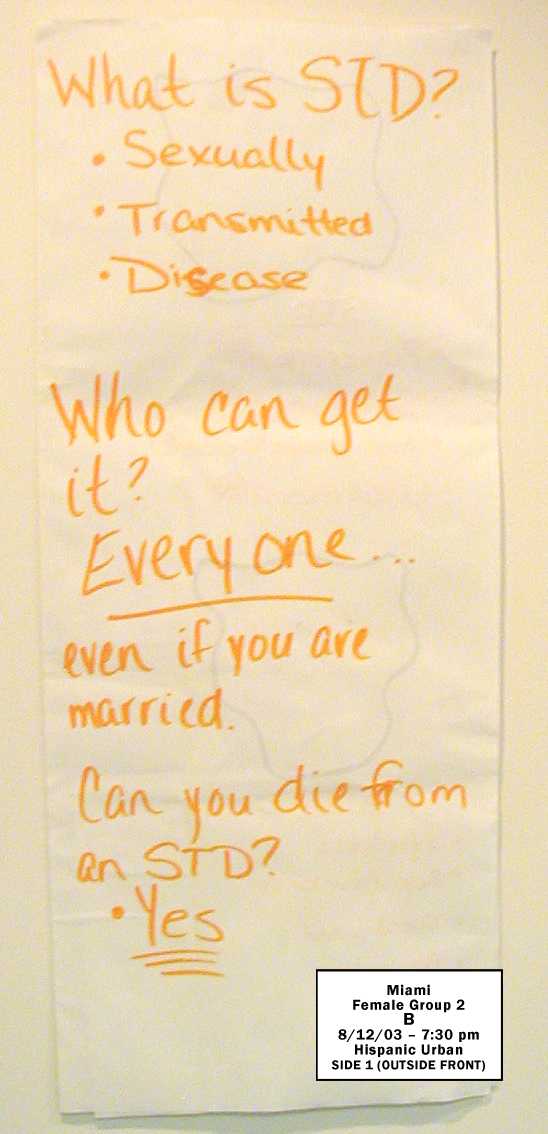 What is STD?
• Sexually
• Transmitted
• Disease
Who can get
it?
Everyone...
even if you are
married.
Can you die from
an STD?
• Yes
Miami
Female Group 2
B
8/12/03 – 7:30 pm
Hispanic Urban
SIDE 1 (OUTSIDE FRONT)